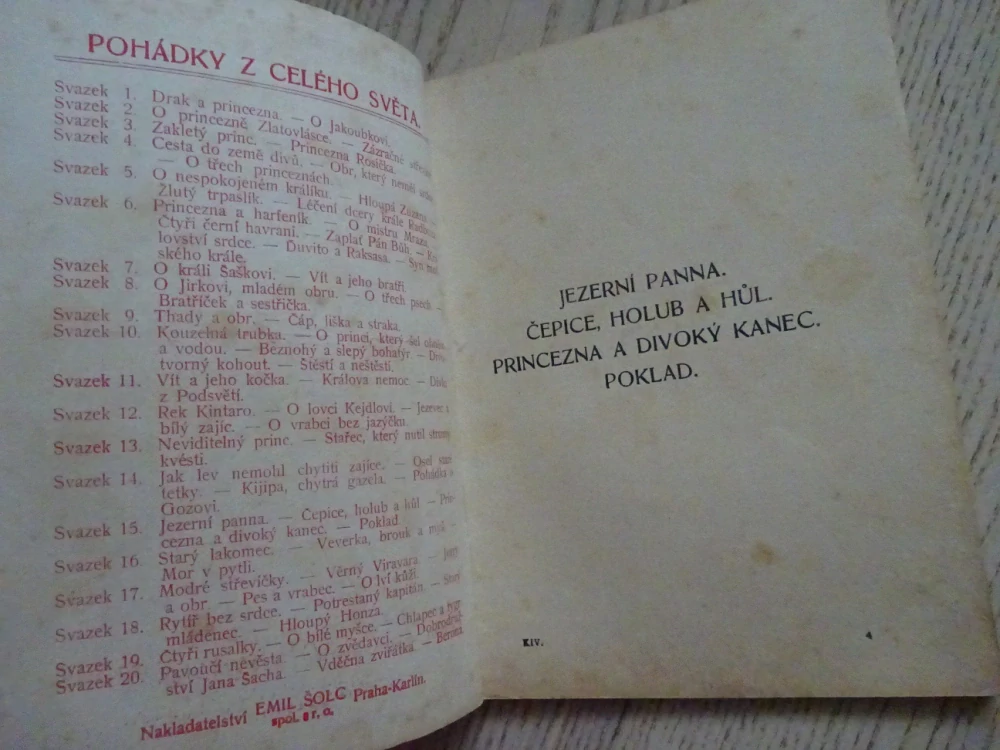 POHÁDKY Z CELÉHO SVĚTA.
Svazek 1. Drak a princezna. — O Jakoubkovi.
Svazek 2. O princezně Zlatovlásce. — Zázračné
Svazek 3. Zakletý princ. — Princezna Rosička.
Svazek 4. Cesta do země divů. — Obr, který neměl
— O třech princeznách.
Svazek 5. O nespokojeném králíku. — Hloupá
Žlutý trpaslík. — Léčení dcery krále
Svazek 6. Princezna a harfeník. — O mistru Mrazu.
Čtyři černí havrani. — Zaplať Pán Bůh. —
lovství srdce. — Duvito a Raksasa. — Syn
ského krále.
Svazek 7. O králi Šaškovi. — Vít a jeho bratři.
Svazek 8. O Jirkovi, mladém obru. — O třech psech —
Bratříček a sestřička.
Svazek 9. Thady a obr. — Čáp, liška a straka.
Svazek 10. Kouzelná trubka. — O princi, který šel
a vodou. — Beznohý a slepý bohatýr. —
tvorný kohout. — Štěstí a neštěstí.
Svazek 11. Vít a jeho kočka. — Králova nemoc —
z Podsvětí.
Svazek 12. Rek Kintaro. — O lovci Kejdlovi. — Jezevec a
bílý zajíc. — O vrabci bez jazýčku.
Svazek 13. Neviditelný princ. — Stařec, který nutil stromy
kvésti.
Svazek 14. Jak lev nemohl chytiti zajíce. — Osel
tetky. — Kijipa, chytrá gazela. — Pohádka o
Gozovi.
Svazek 15. Jezerní panna. — Čepice, holub a hůl — Prin-
cezna a divoký kanec. — Poklad.
Svazek 16. Starý lakomec. — Veverka, brouk a myš —
Mor v pytli.
Svazek 17. Modré střevíčky. — Věrný Viravara. —
a obr. — Pes a vrabec. — O lví kůži.
Svazek 18. Rytíř bez srdce. — Potrestaný kapitán. — Starý
mládenec. — Hloupý Honza.
Svazek 19. Čtyři rusalky. — O bílé myšce. — Chlapec a tygr
Svazek 20. Pavoučí nevěsta. — O zvědavci. — Dobrodruž-
ství Jana Šacha. — Vděčná zvířátka. —
Nakladatelství EMIL ŠOLC Praha-Karlín.
spol. s r. o.
JEZERNÍ PANNA.
ČEPICE, HOLUB A HŮL.
PRINCEZNA A DIVOKÝ KANEC.
POKLAD.
XIV. 4